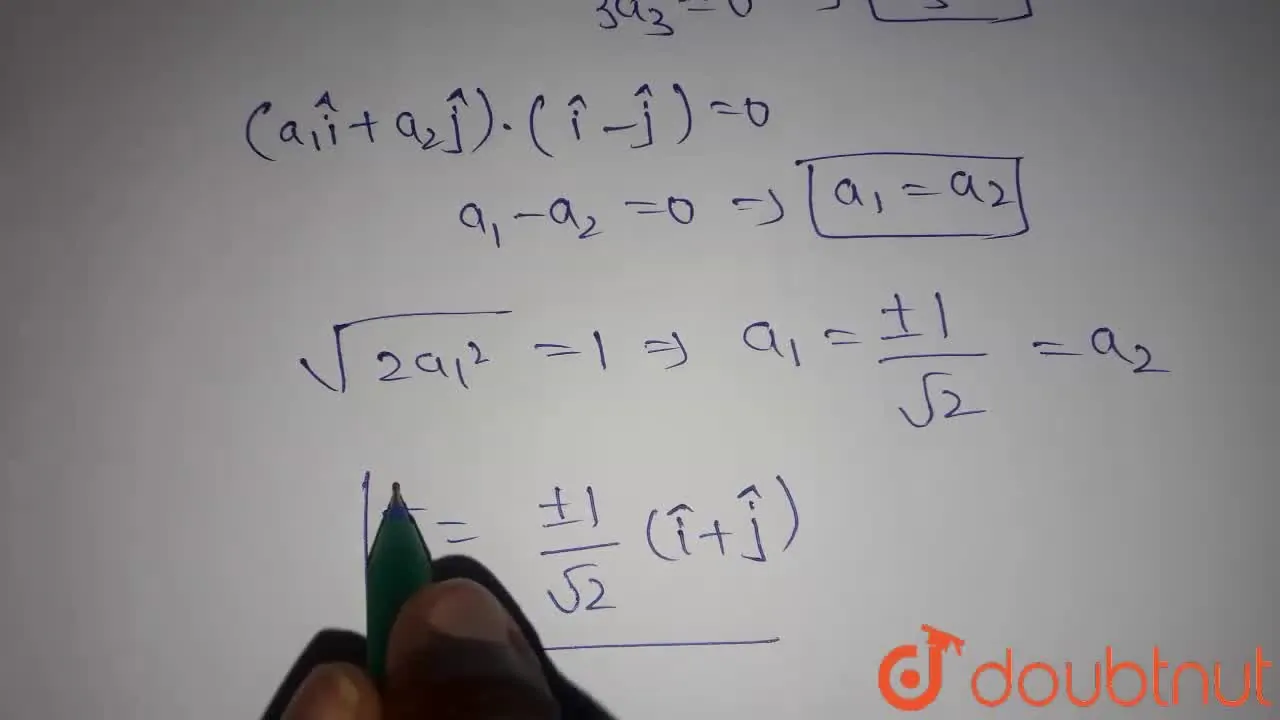 3a₃ = 0
(a₁î + a₂ĵ)·(î − ĵ) = 0
a₁ − a₂ = 0 ⇒ a₁ = a₂
√(2a₁²) = 1 ⇒ a₁ = ±1/√2 = a₂
= ±1/√2 (î + ĵ)
doubtnut